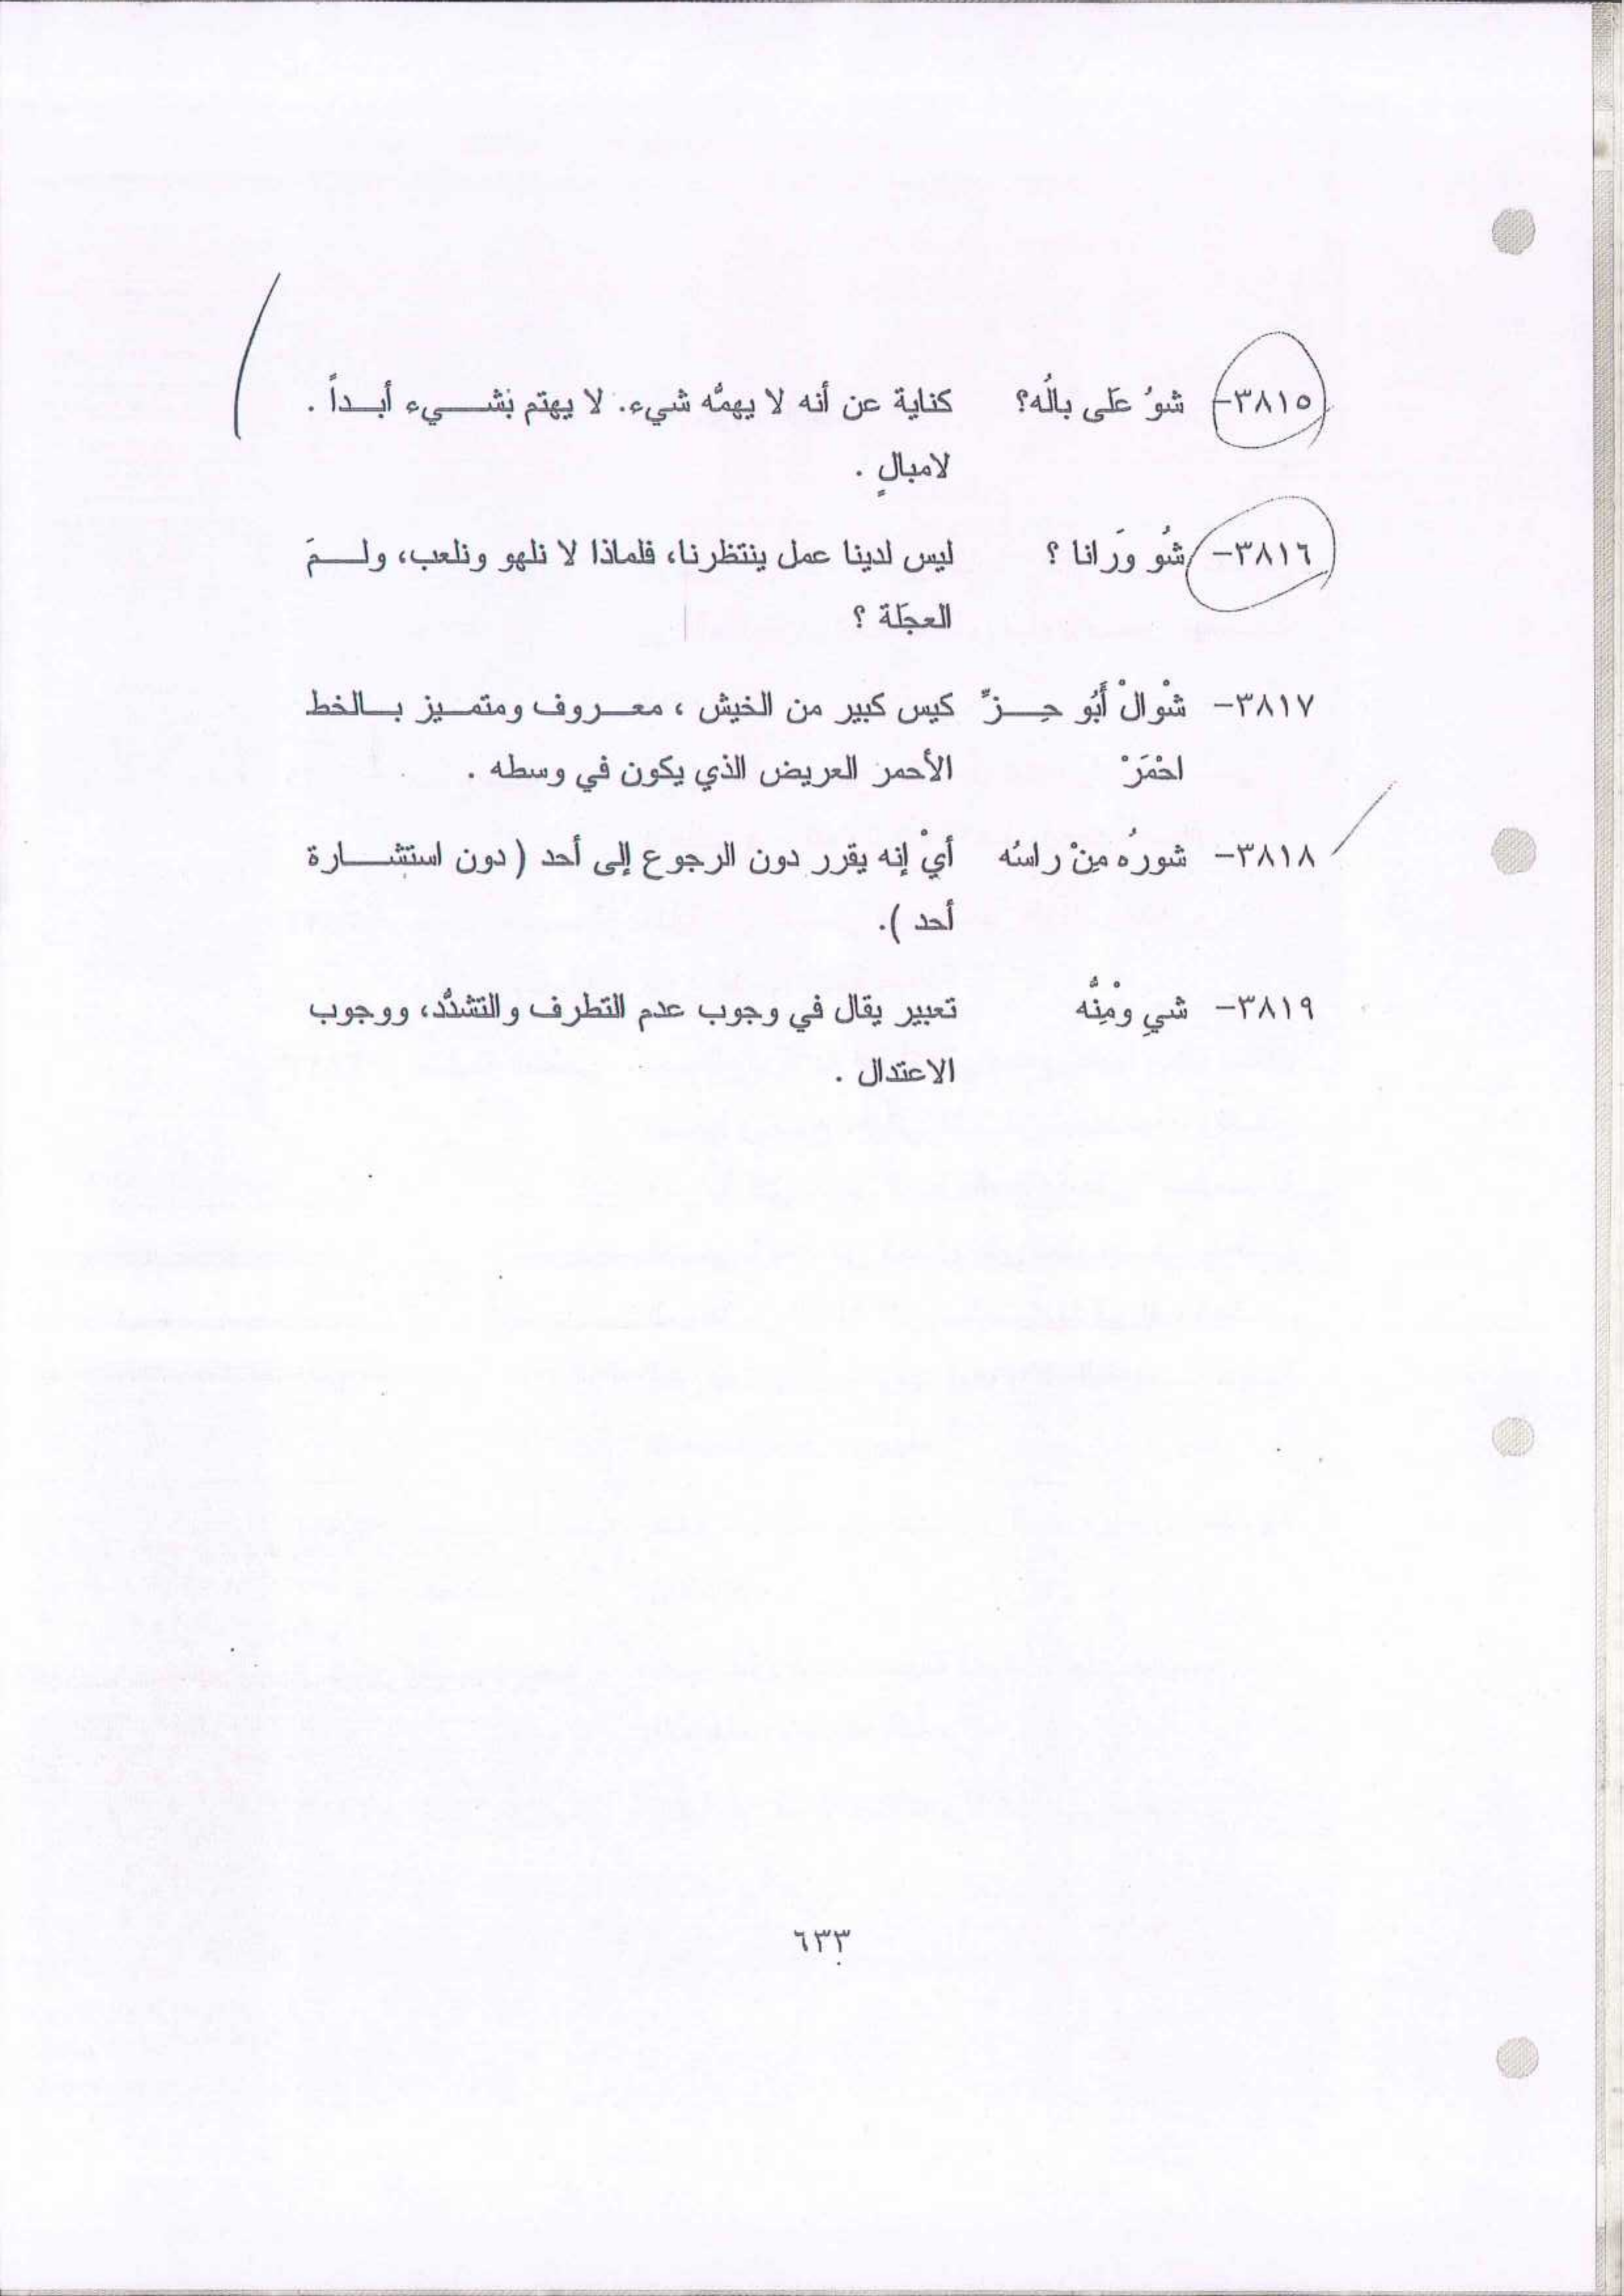 ٣٨١٥- شوُ عَلى بالُه؟ كناية عن أنه لا يهمُّه شيء. لا يهتم بشــيء أبــداً .
لامبالٍ .
٣٨١٦- شُو وَرانا ؟ ليس لدينا عمل ينتظرنا، فلماذا لا نلهو ونلعب، ولــمَ
العجَلة ؟
٣٨١٧- شْوالْ أَبُو حِــزّ كيس كبير من الخيش ، معــروف ومتمــيز بــالخط
احْمَرْ الأحمر العريض الذي يكون في وسطه .
٣٨١٨- شورُه مِنْ راسُه أيْ إنه يقرر دون الرجوع إلى أحد ( دون استشــارة
أحد ).
٣٨١٩- شي ومْنِهُّ تعبير يقال في وجوب عدم التطرف والتشدُّد، ووجوب
الاعتدال .
٦٣٣